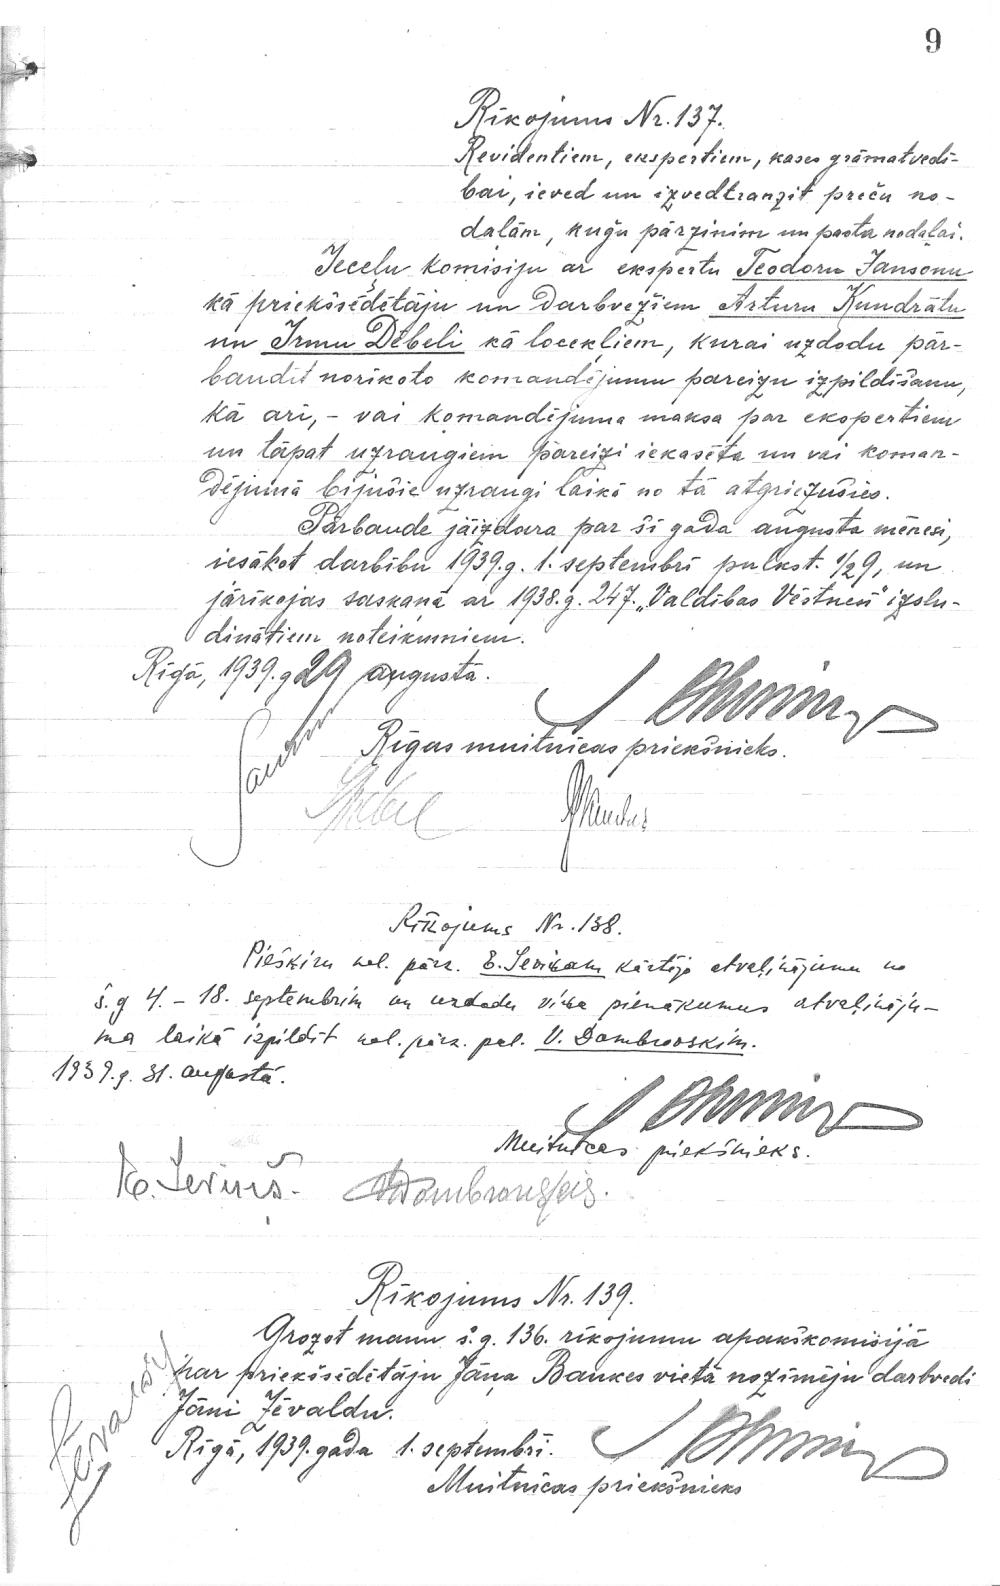 9
Rīkojums Nr. 137.
Revidentiem, ekspertiem, kases grāmatvedī-
bai, ieved un izvedtranzit preču no-
daļām, kuģu pārzinim un pasta nodaļai.
Ieceļu komisiju ar ekspertu Teodoru Jansonu
kā priekšsēdētāju un darbvežiem Arturu Kundrātu
un Irmu Dēbeli kā locekļiem, kurai uzdodu pār-
baudīt norīkoto komandējumu pareizu izpildīšanu,
kā arī, - vai komandējuma maksa par ekspertiem
un tāpat uzraugiem pareizi iekasēta un vai koman-
dējumā bijušie uzraugi laikā no tā atgriezušies.
Pārbaude jāizdara par šī gada augusta mēnesi,
iesākot darbību 1939.g. 1. septembrī pulkst. 1/29, un
jārīkojas saskaņā ar 1938.g. 247. „Valdības Vēstnesī" izslu-
dinātiem noteikumiem.
Rīgā, 1939.g 29 augustā.
Rīgas muitnīcas priekšnieks.
Rīkojums Nr. 138.
Piešķiru nol. pārz. E. Seriņam kārtējo atvaļinājumu no
š.g 4. - 18. septembrim un uzdodu viņa pienākumus atvaļināju-
ma laikā izpildīt nol. pārz. pal. V. Dombrovskim.
1939.g. 31. augustā.
Muitnīcas priekšnieks.
E. Seriņš. Dombrovskis.
Rīkojums Nr. 139.
Grozot manu š.g. 136. rīkojumu apakškomisijā
par priekšsēdētāju Jāņa Baukes vietā nozīmēju darbvedi
Jāni Zēvaldu.
Rīgā, 1939. gada 1. septembrī.
Muitnīcas priekšnieks